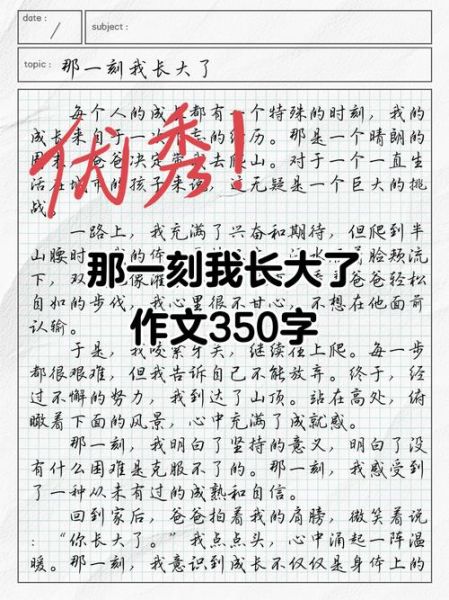 date :
subject :
topic : 那一刻我长大了
每个人的成长都有一个特殊的时刻，我的
成长来自于一次难忘的经历。那是一个晴朗的
周末，爸爸决定带我去爬山。对于一个一直生
活在城市的孩子来说，这无疑是一个巨大的挑
战。
优秀！
一路上，我充满了兴奋和期待，但爬到半
山腰时，我的体
脸颊流
下，双
像灌
爸爸轻松
自如的步伐，我心里很不甘心，不想在他面前
认输。
那一刻我长大了
作文350字
于是，我咬紧牙关，继续往上爬。每一步
都很艰难，但我告诉自己不能放弃。终于，经
过不懈的努力，我到达了山顶。站在高处，俯
瞰着下面的风景，心中充满了成就感。
那一刻，我明白了坚持的意义，明白了没
有什么困难是克服不了的。那一刻，我感受到
了一种从未有过的成熟和自信。
回到家后，爸爸拍着我的肩膀，微笑着说
：“你长大了。”我点点头，心中涌起一阵温
暖。那一刻，我意识到成长不仅仅是身体上的